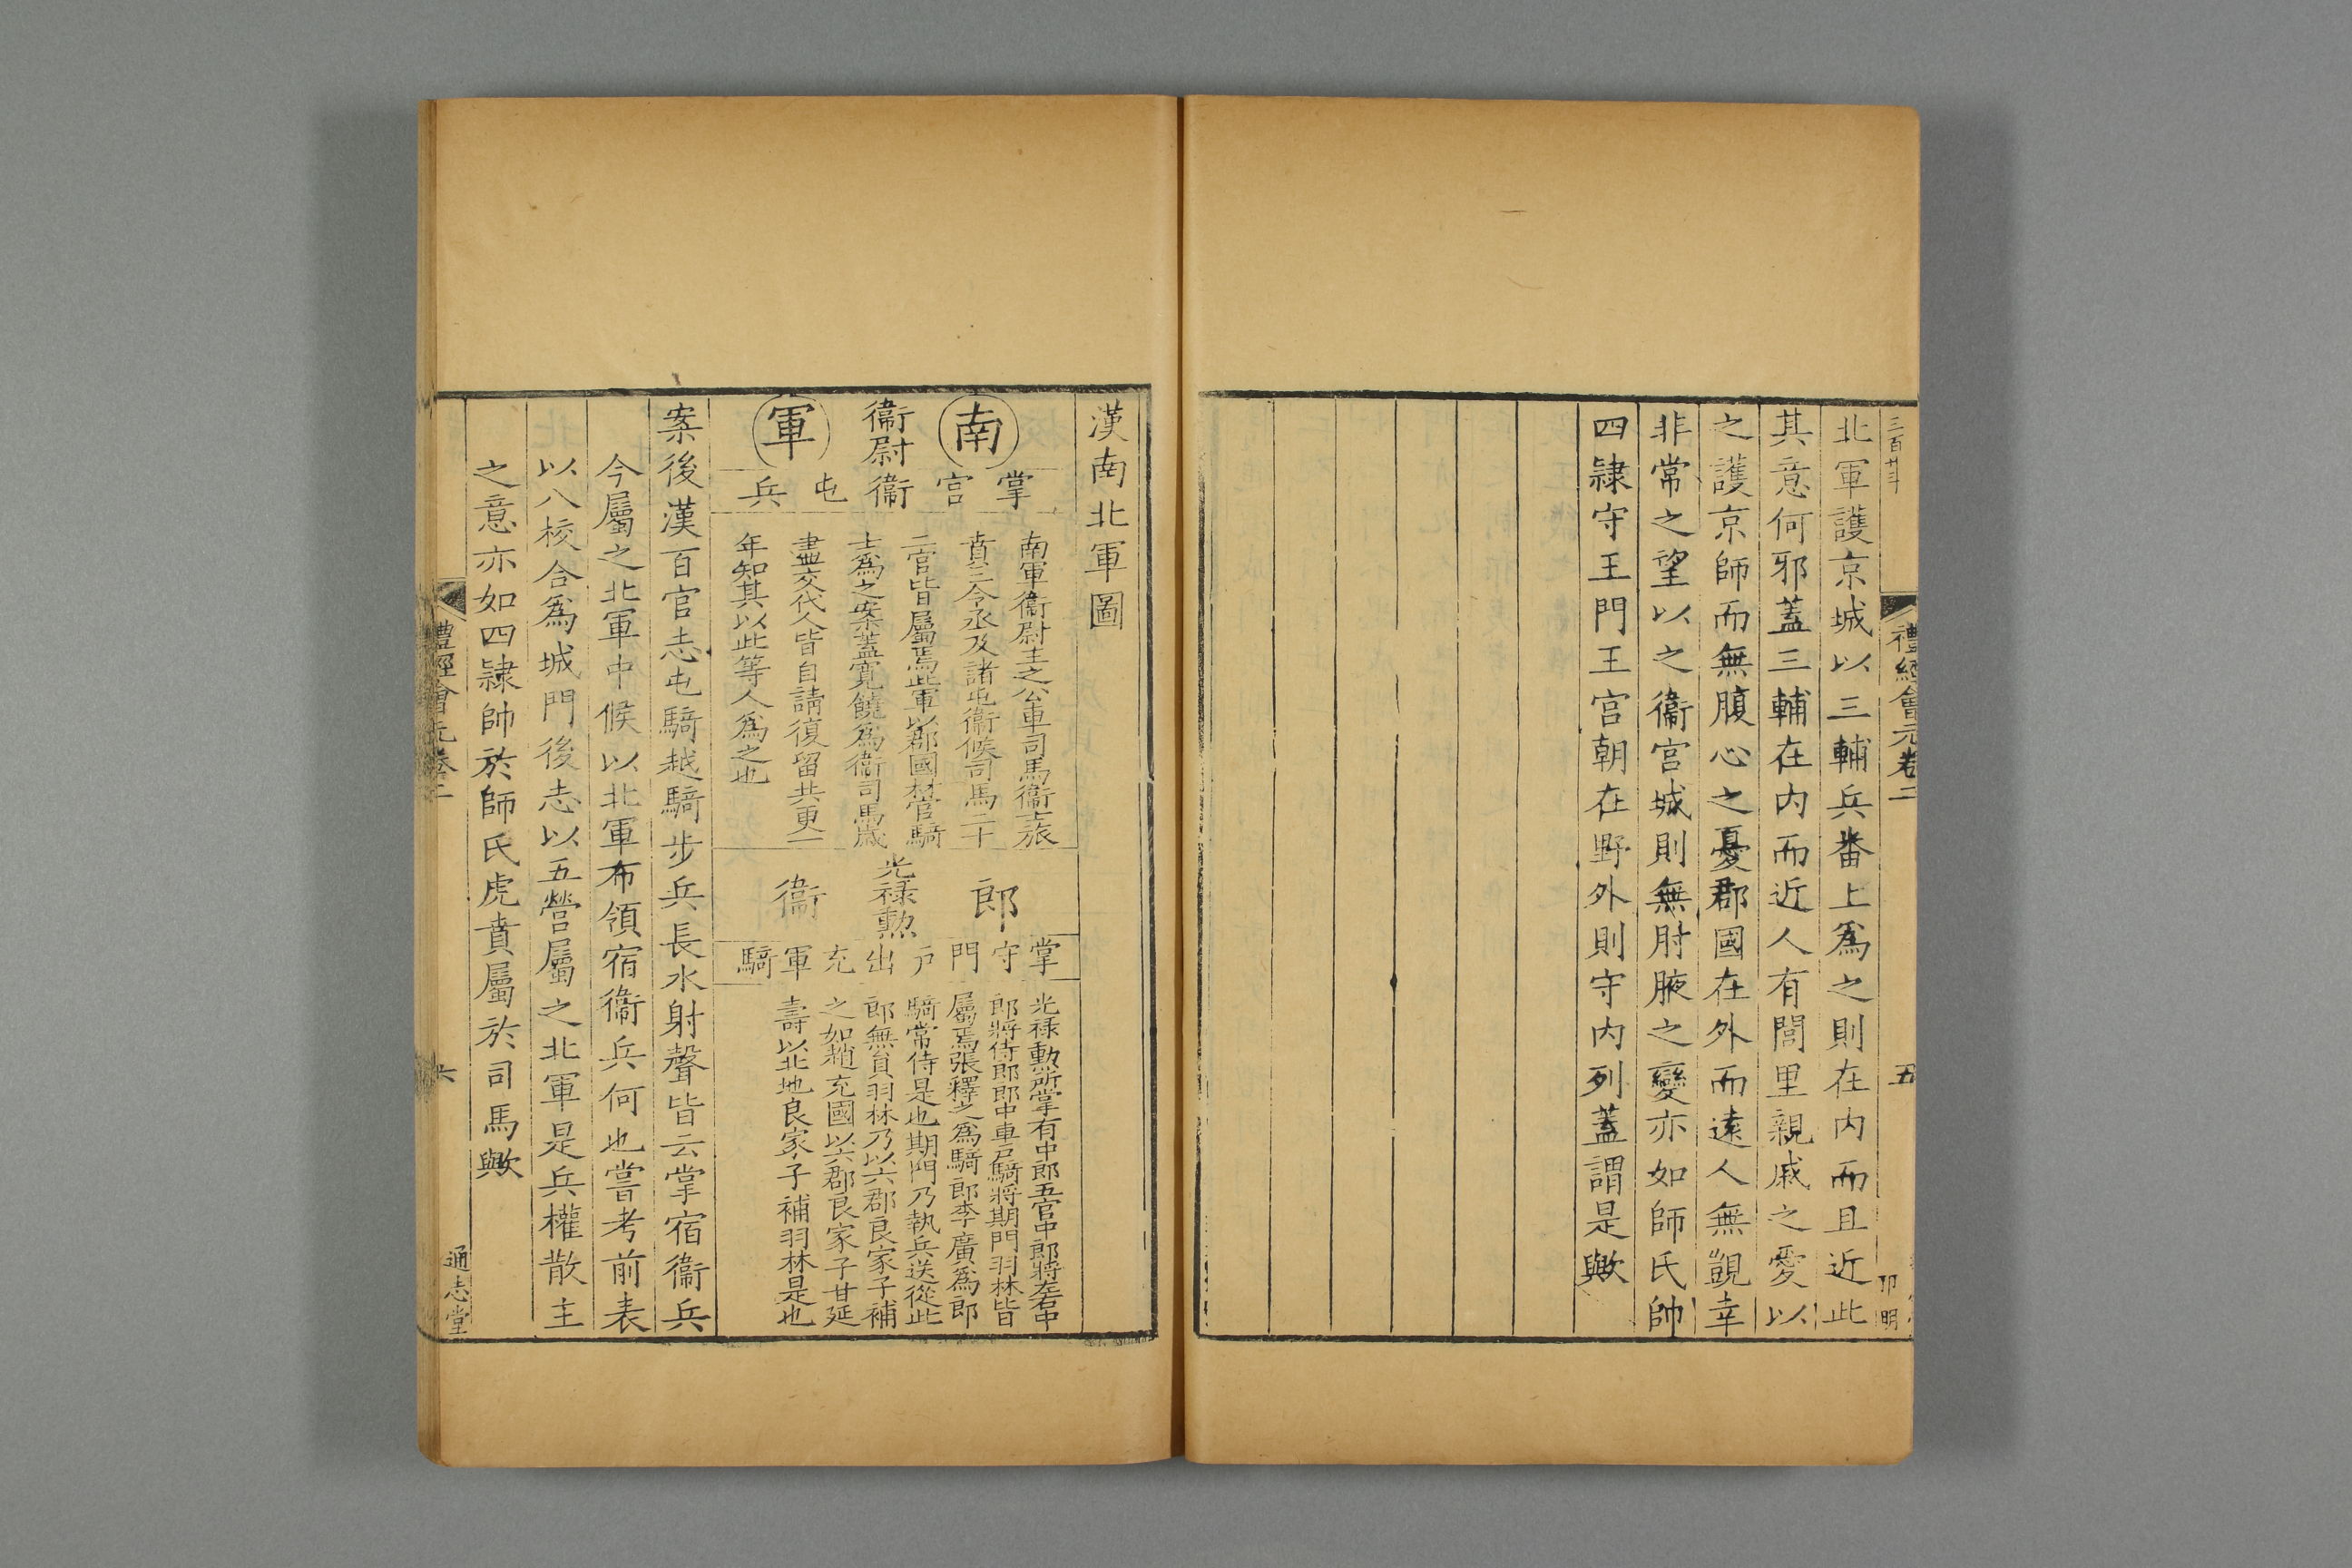 三百廿三
禮經會元卷二
五
卭明
北軍護京城以三輔兵番上爲之則在內而且近此
其意何邪蓋三輔在內而近人有閭里親戚之愛以
之護京師而無腹心之憂郡國在外而遠人無覬幸
非常之望以之衞宮城則無肘腋之變亦如師氏帥
四隷守王門王宮朝在野外則守內列蓋謂是歟
漢南北軍圖
南
軍
衞尉
掌宮衞屯兵
南軍衞尉主之公車司馬衞士旅
賁三令丞及諸屯衞候司馬二十
二官皆屬焉此軍以郡國材官騎
士爲之案蓋寬饒爲衞司馬歲
盡交代人皆自請復留共更一
年知其以此等人爲之也
郎
光祿勲
衞
掌守門戶出充軍騎
光祿勲所掌有中郎五官中郎將左右中
郎將侍郎郎中車戶騎將期門羽林皆
屬焉張釋之爲騎郎李廣爲郎
騎常侍是也期門乃執兵送從此
郎無員羽林乃以六郡良家子補
之如趙充國以六郡良家子甘延
壽以北地良家子補羽林是也
案後漢百官志屯騎越騎步兵長水射聲皆云掌宿衞兵
今屬之北軍中候以北軍布領宿衞兵何也嘗考前表
以八校合爲城門後志以五營屬之北軍是兵權散主
之意亦如四隷帥於師氏虎賁屬於司馬歟
禮經會元卷二
六
通志堂